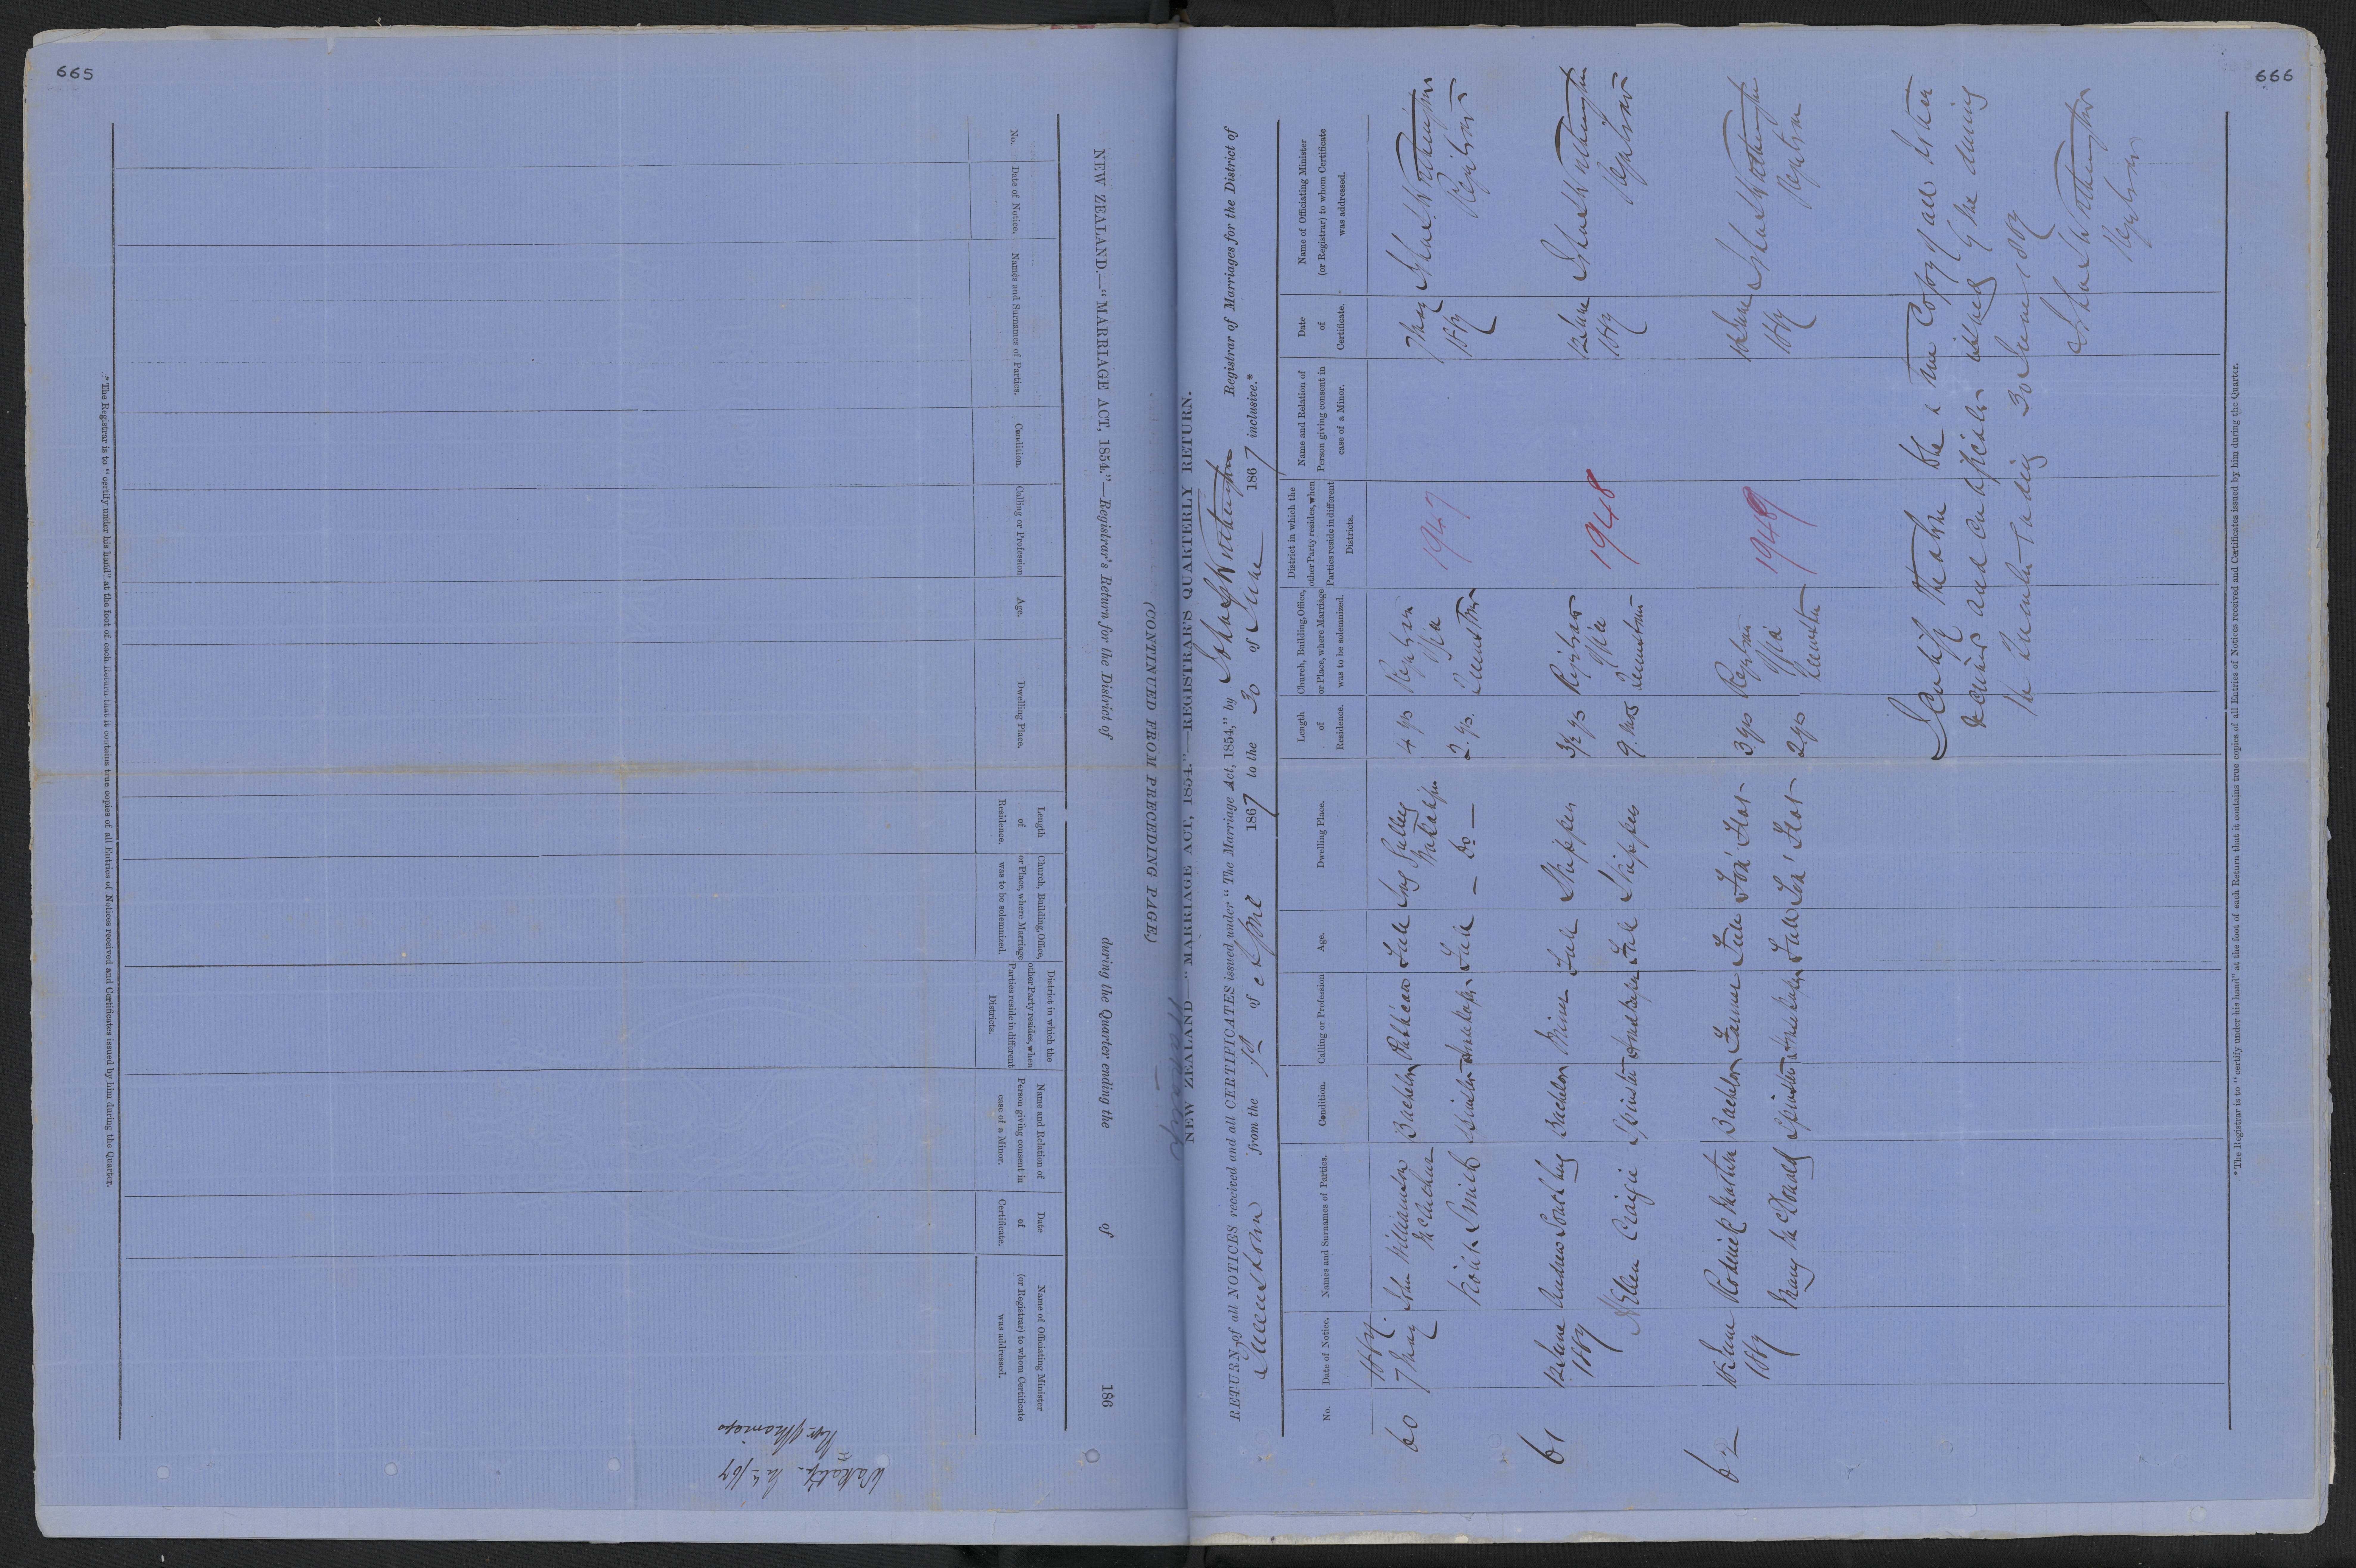 665
(CONTINUED FROM PRECEDING PAGE.)
NEW ZEALAND.—"MARRIAGE ACT, 1854."—Registrar's Return for the District of during the Quarter ending the of 186
No.
Date of Notice.
Names and Surnames of Parties.
Condition.
Calling or Profession
Age.
Dwelling Place.
Length
of
Residence.
Church, Building, Office,
or Place, where Marriage
was to be solemnized.
District in which the
other Party resides, when
Parties reside in different
Districts.
Name and Relation of
Person giving consent in
case of a Minor.
Date
of
Certificate.
Name of Officiating Minister
(or Registrar) to whom Certificate
was addressed.
*The Registrar is to "certify under his hand" at the foot of each Return that it contains true copies of all Entries of Notices received and Certificates issued by him during the Quarter.
666
NEW ZEALAND—"MARRIAGE ACT, 1854."—REGISTRAR'S QUARTERLY RETURN.
RETURN of all NOTICES received and all CERTIFICATES issued under "The Marriage Act, 1854," by Registrar of Marriages for the District of
Queenstown from the 1st of April 1867 to the 30 of June 1867 inclusive.*
No.
Date of Notice.
Names and Surnames of Parties.
Condition.
Calling or Profession
Age.
Dwelling Place.
Length
of
Residence.
Church, Building, Office,
or Place, where Marriage
was to be solemnized.
District in which the
other Party resides, when
Parties reside in different
Districts.
Name and Relation of
Person giving consent in
case of a Minor.
Date
of
Certificate.
Name of Officiating Minister
(or Registrar) to whom Certificate
was addressed.
60
1867.
7 May
John Williamson
Bachelor
Full
4 yrs
Registrar
Office
Queenstown
1947
7 May
1867
Registrar
Smith
Spinster
Full
— Do —
2 yrs.
61
12 June
1867
Andrew
Bachelor
Miner
Full
Skippers
3½ yrs
Registrar
Office
Queenstown
1948
12 June
1867
Registrar
Ellen Craigie
Spinster
Full
Skippers
9 mos
62
18 June
1867
Roderick Martin
Bachelor
Farmer
Full
3 yrs
Registrar
Office
Queenstown
1949
18 June
1867
Registrar
Mary McDonald
Spinster
Full
2 yrs
I Certify that the above is a true Copy of all Notices
received and Certificates issued by me during
the Quarter ending 30 June 1867
Registrar
*The Registrar is to "certify under his hand" at the foot of each Return that it contains true copies of all Entries of Notices received and Certificates issued by him during the Quarter.